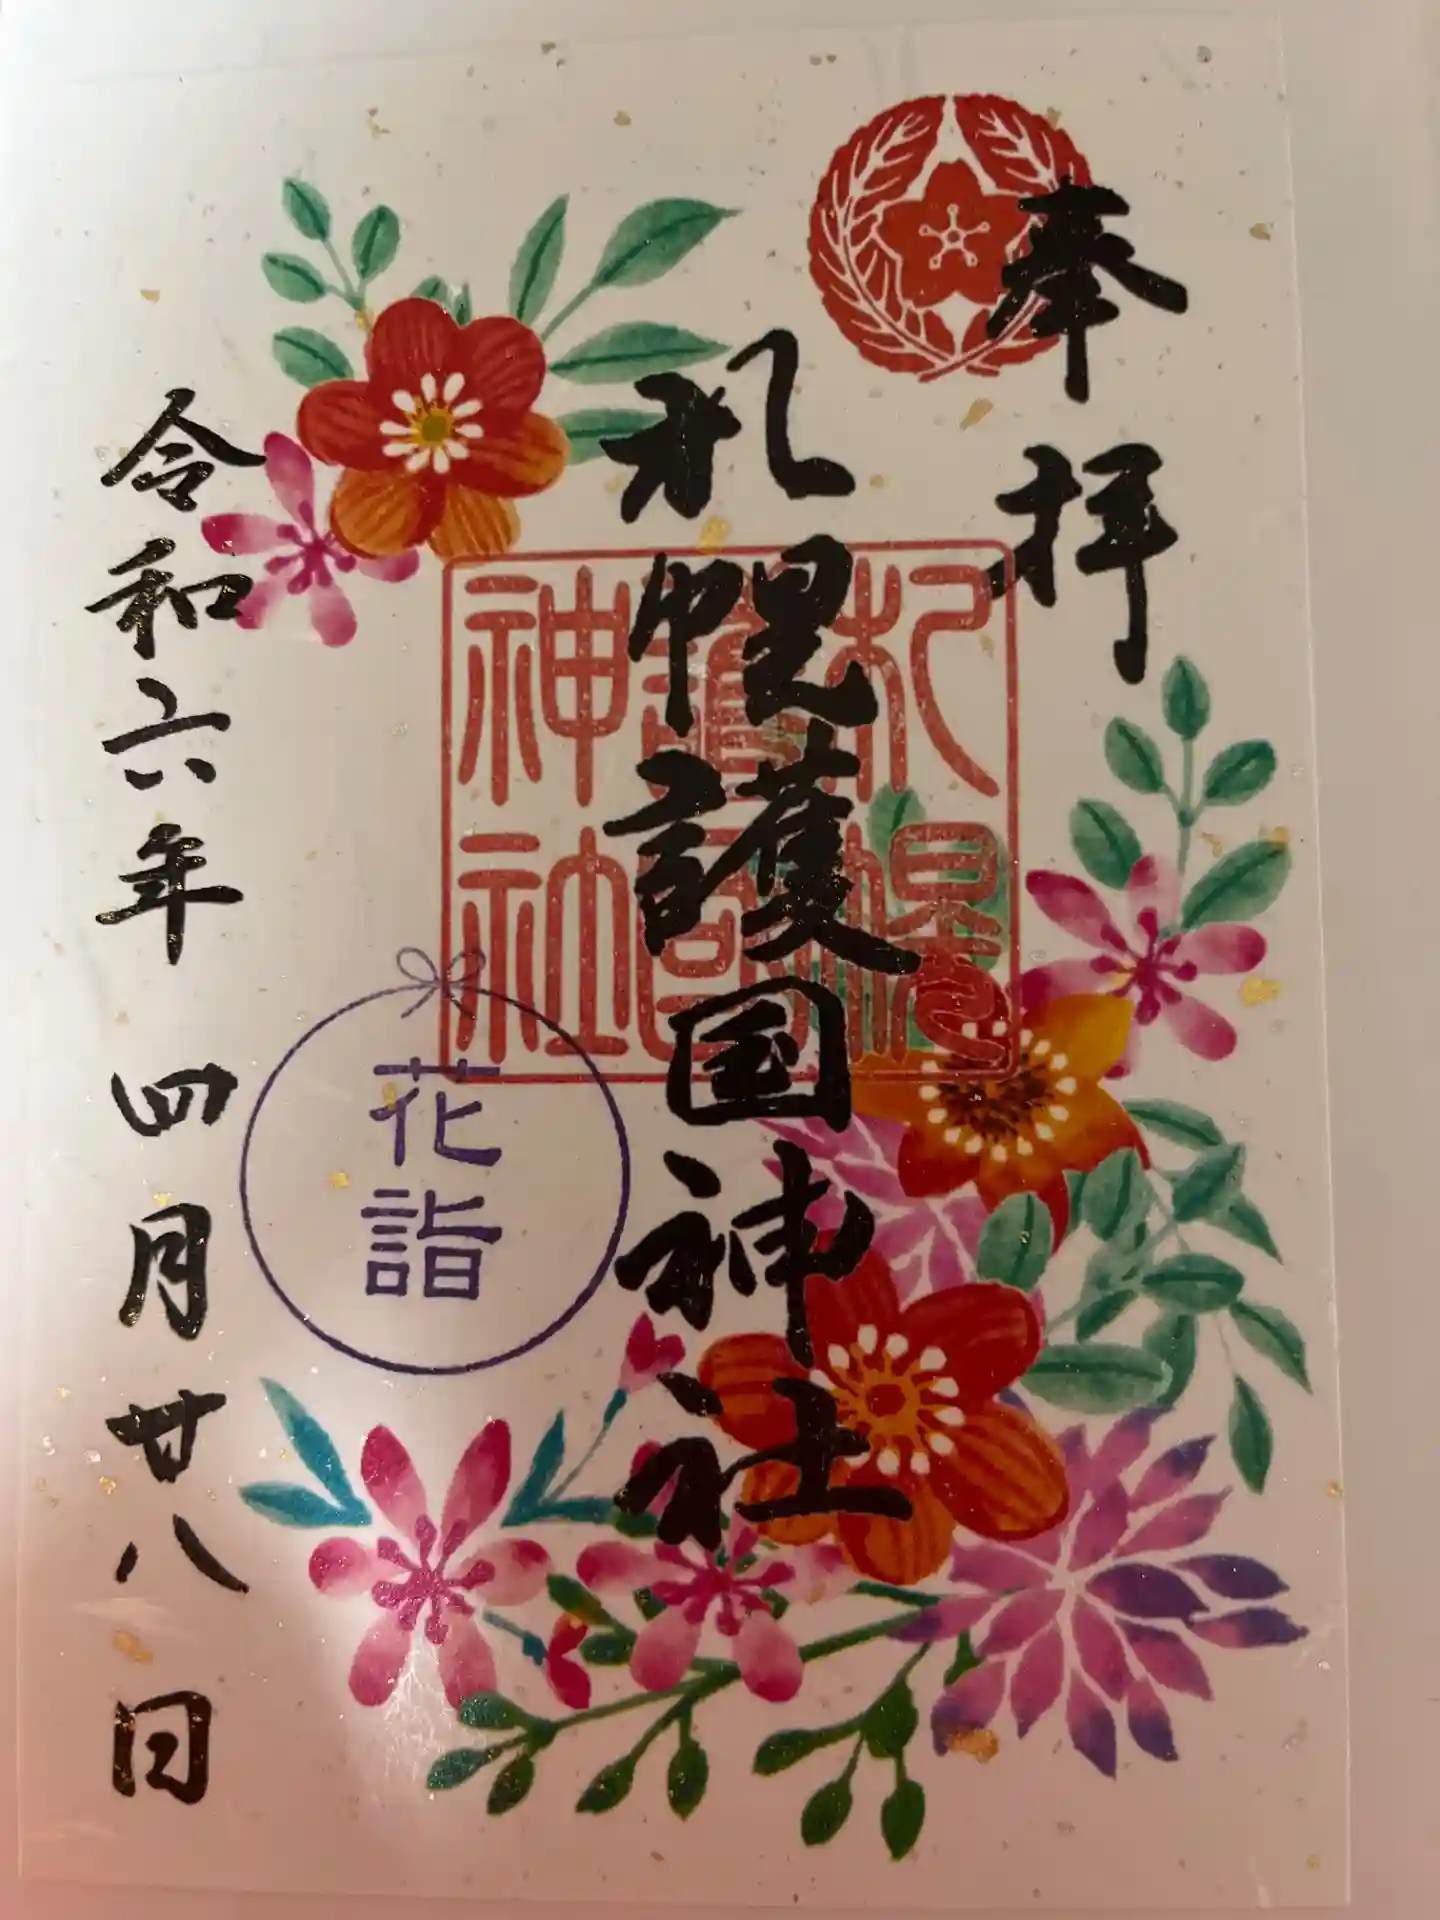 奉拝
札幌護国神社
札幌
護國
神社
花詣
令和六年 四月廿八日